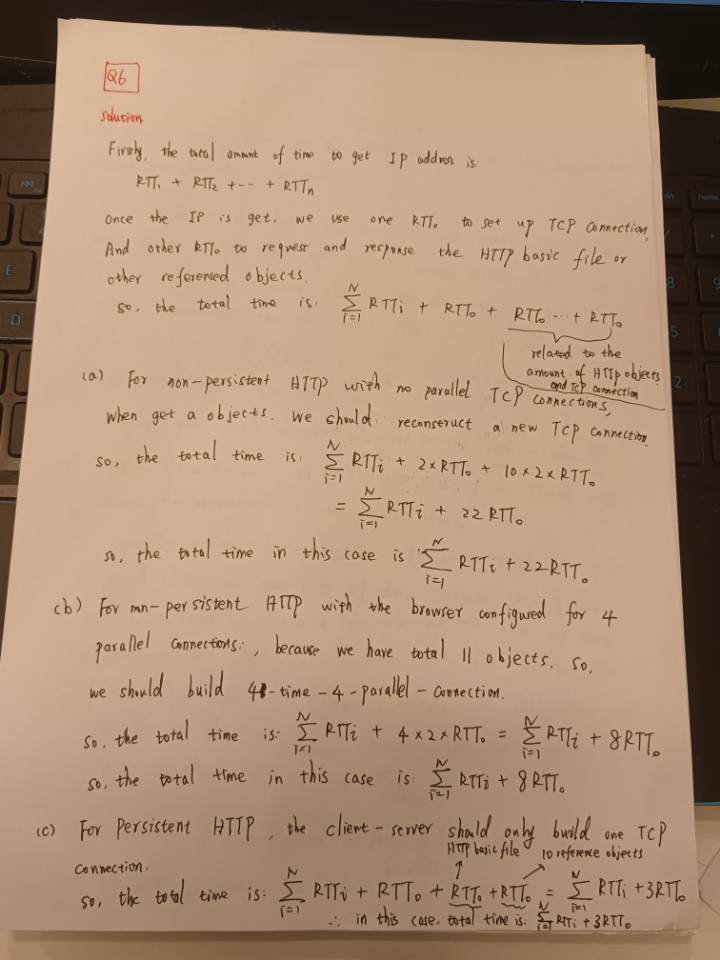 Q6
Solution
Firstly, the total amount of time to get IP address is:
RTT₁ + RTT₂ + -- + RTTn
Once the IP is get. we use one RTT₀ to set up TCP Connection,
And other RTT₀ to request and response the HTTP basic file or
other referenced objects.
so, the total time is: ∑_{i=1}^{N} RTTi + RTT₀ + RTT₀ ... + RTT₀
related to the
amount of HTTP objects
and TCP connection
(a) For non-persistent HTTP with no parallel TCP connections,
when get a objects. we should reconseruct a new TCP connection.
so, the total time is: ∑_{i=1}^{N} RTTi + 2×RTT₀ + 10×2×RTT₀
= ∑_{i=1}^{N} RTTi + 22RTT₀
so, the total time in this case is ∑_{i=1}^{N} RTTi + 22RTT₀
(b) For mn-persistent HTTP with the browser configured for 4
parallel connections:, because we have total 11 objects. so,
we should build 4-time-4-parallel-connection.
so, the total time is: ∑_{i=1}^{N} RTTi + 4×2×RTT₀ = ∑_{i=1}^{N} RTTi + 8RTT₀
so, the total time in this case is: ∑_{i=1}^{N} RTTi + 8RTT₀
(c) For Persistent HTTP, the client-server should only build one TCP
HTTP basic file 10 reference objects
connection.
so, the total time is: ∑_{i=1}^{N} RTTi + RTT₀ + RTT₀ + RTT₀ = ∑_{i=1}^{N} RTTi + 3RTT₀
∴ in this case, total time is: ∑_{i=1}^{N} RTTi + 3RTT₀